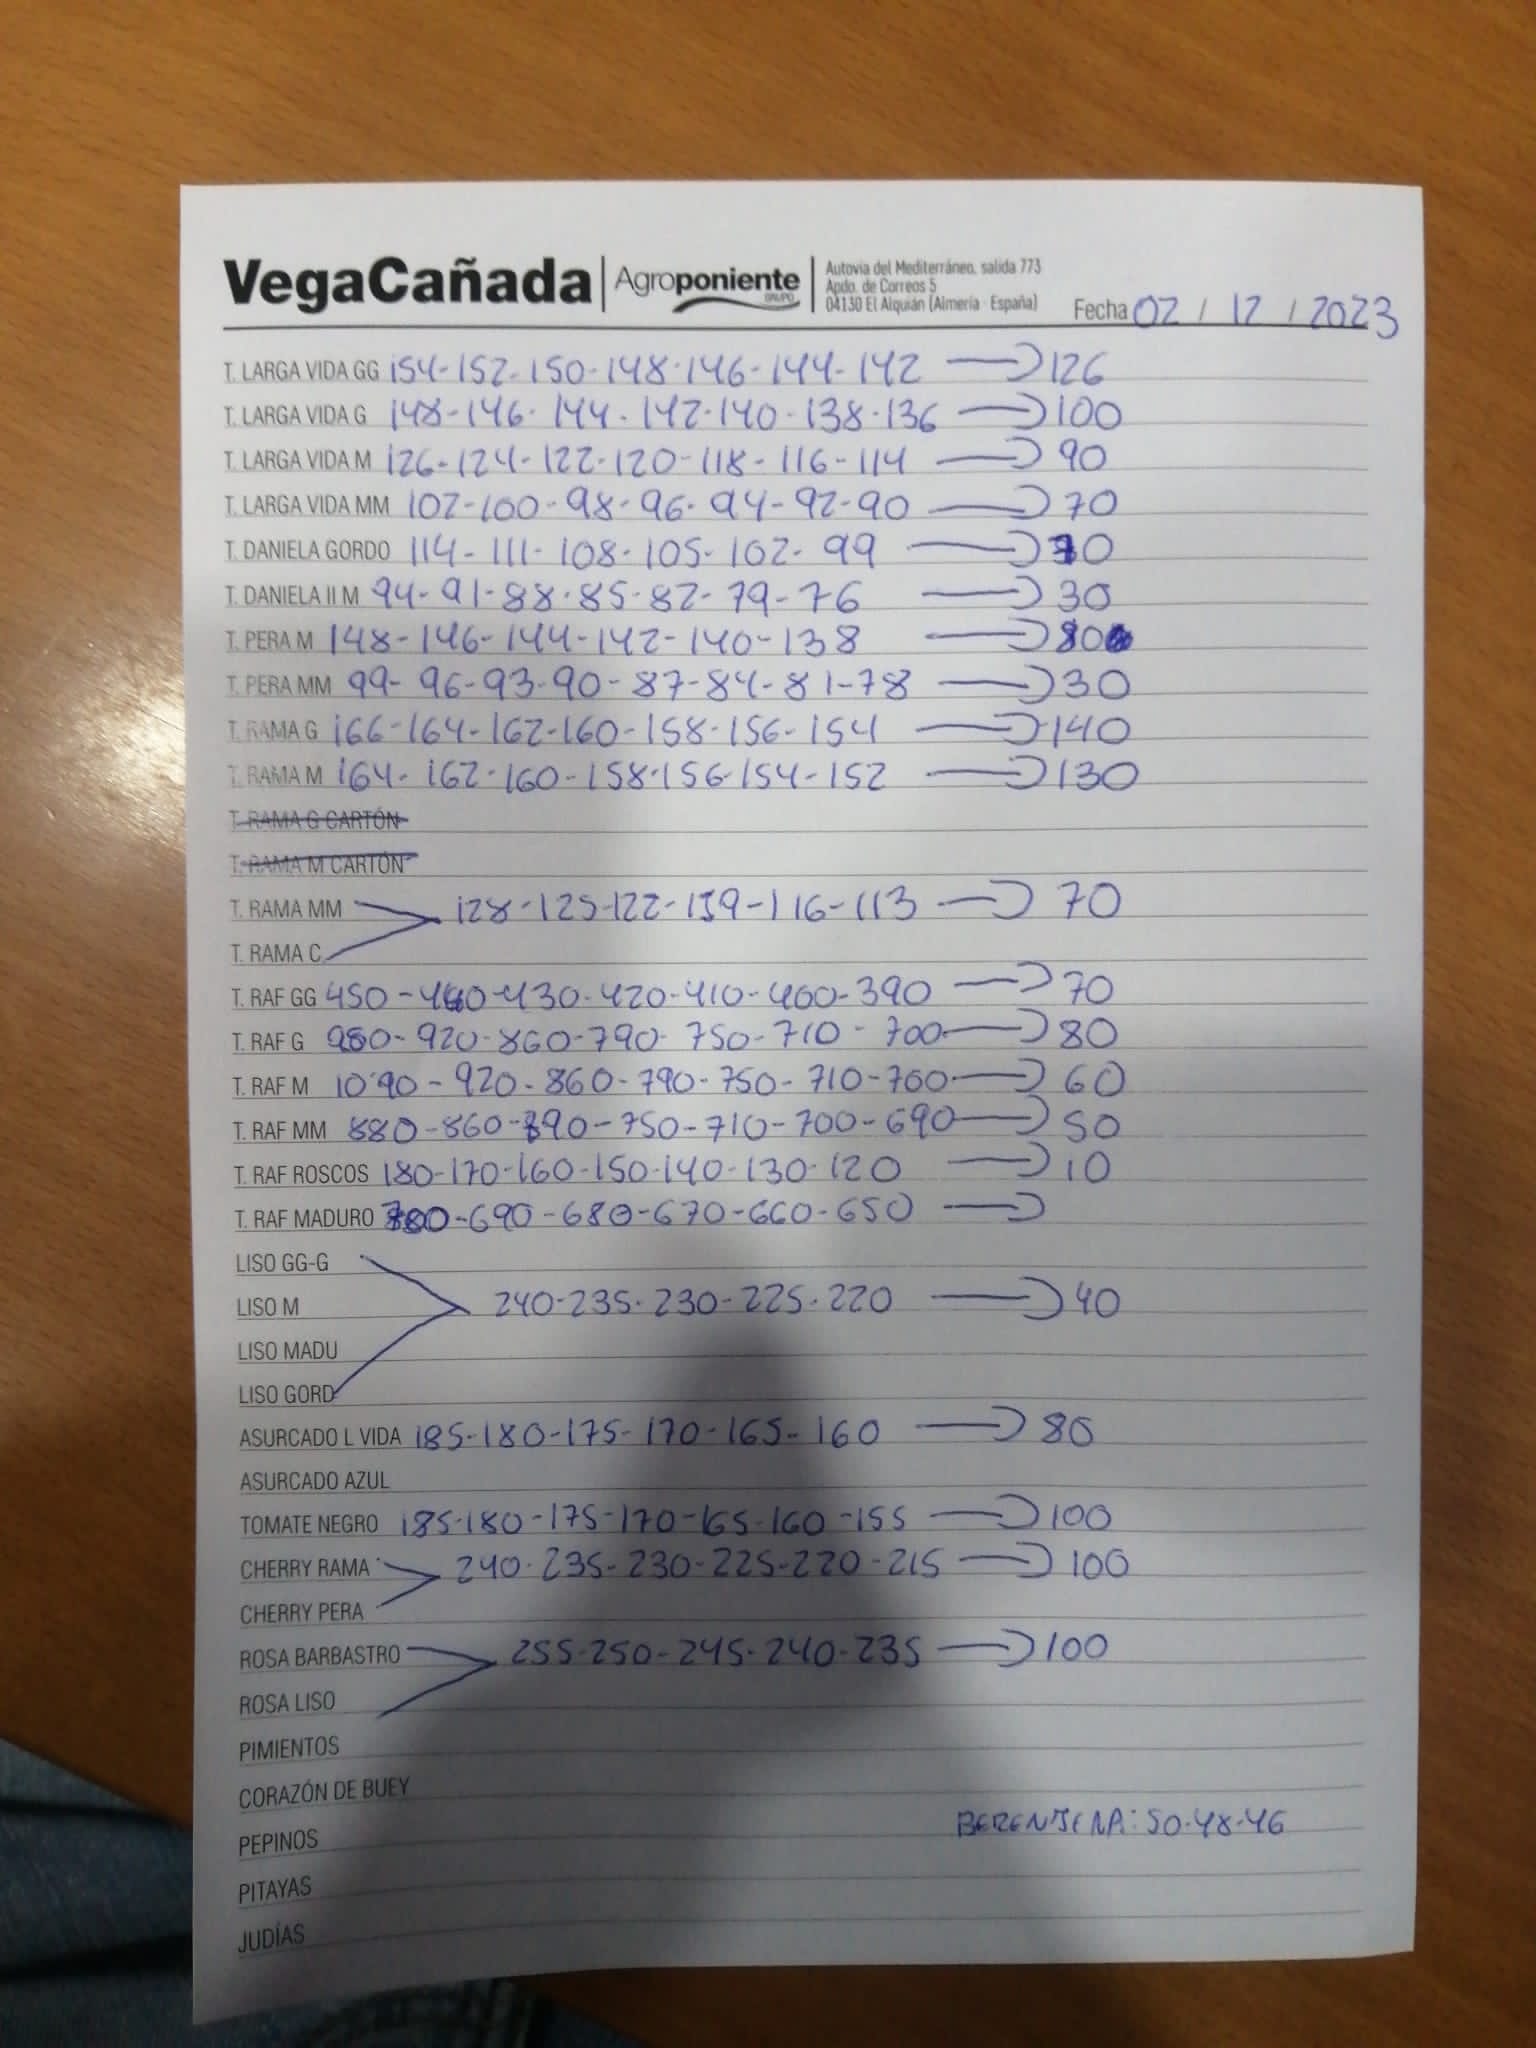 VegaCañada | Agroponiente GRUPO
Autovía del Mediterráneo, salida 773
Apdo. de Correos 5
04130 El Alquián (Almería - España)
Fecha 02 / 12 / 2023
T. LARGA VIDA GG 154-152-150-148-146-144-142 → 126
T. LARGA VIDA G 148-146-144-142-140-138-136 → 100
T. LARGA VIDA M 126-124-122-120-118-116-114 → 90
T. LARGA VIDA MM 102-100-98-96-94-92-90 → 70
T. DANIELA GORDO 114-111-108-105-102-99 →
T. DANIELA II M 94-91-88-85-82-79-76 → 30
T. PERA M 148-146-144-142-140-138 → 80
T. PERA MM 99-96-93-90-87-84-81-78 → 30
T. RAMA G 166-164-162-160-158-156-154 → 140
T. RAMA M 164-162-160-158-156-154-152 → 130
T. RAMA G CARTÓN
T. RAMA M CARTÓN
T. RAMA MM 128-125-122-119-116-113 → 70
T. RAMA C
T. RAF GG 450-440-430-420-410-400-390 → 70
T. RAF G 980-920-860-790-750-710-700 → 80
T. RAF M 1090-920-860-790-750-710-700 → 60
T. RAF MM 880-860-790-750-710-700-690 → 50
T. RAF ROSCOS 180-170-160-150-140-130-120 → 10
T. RAF MADURO 700-690-680-670-660-650 →
LISO GG-G
LISO M 240-235-230-225-220 → 40
LISO MADU
LISO GORD
ASURCADO L VIDA 185-180-175-170-165-160 → 80
ASURCADO AZUL
TOMATE NEGRO 185-180-175-170-165-160-155 → 100
CHERRY RAMA 240-235-230-225-220-215 → 100
CHERRY PERA
ROSA BARBASTRO 255-250-245-240-235 → 100
ROSA LISO
PIMIENTOS
CORAZÓN DE BUEY
BERENJENA: 50-48-46
PEPINOS
PITAYAS
JUDÍAS